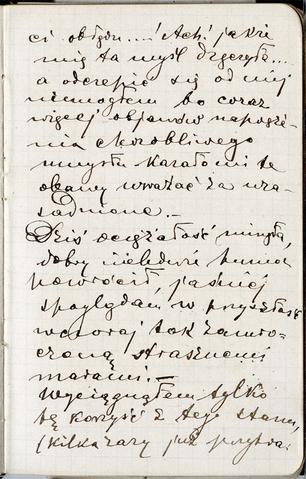 ci obłędu....! Ach! jakże
mię ta myśl dręczyła....
a odczepić się od niej
niemogłem bo coraz
więcej objawów napręże-
nia chorobliwego
umysłu kazało mi te
obawy uważać za uza-
sadnione. –
Dziś ociężałość minęła,
dobry nieledwie humor
powrócił, jaśniej
spoglądam w przyszłość
wczoraj tak zamro-
czoną strasznemi
marami. –
Wyciągnąłem tylko
tę korzyść z tego stanu,
(kilka razy już przytra-